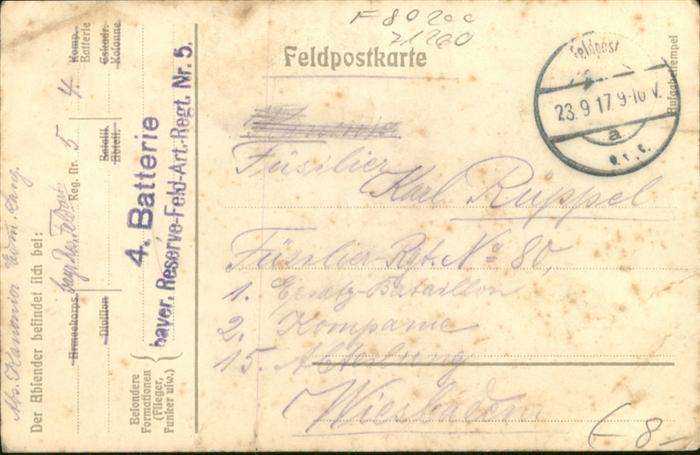 F 80200
71260
Feldpostkarte
Feldpost
23.9.17 9-10 V.
a
Aufgabestempel
Füsilier
Karl Ruppel
Füsilier-Rgt. No 80,
1. Ersatz-Bataillon
2. Kompanie
15. Abteilung
Wiesbaden
(-8-
Der Absender befindet sich bei:
Armeekorps
Division
Reg. Nr. 5
Bataill.
Abteil.
4.
Komp.
Batterie
Eskadr.
Kolonne
Besondere
Formationen
(Flieger,
Funker usw.)
4. Batterie
bayer. Reserve-Feld-Art.-Regt. Nr. 5.